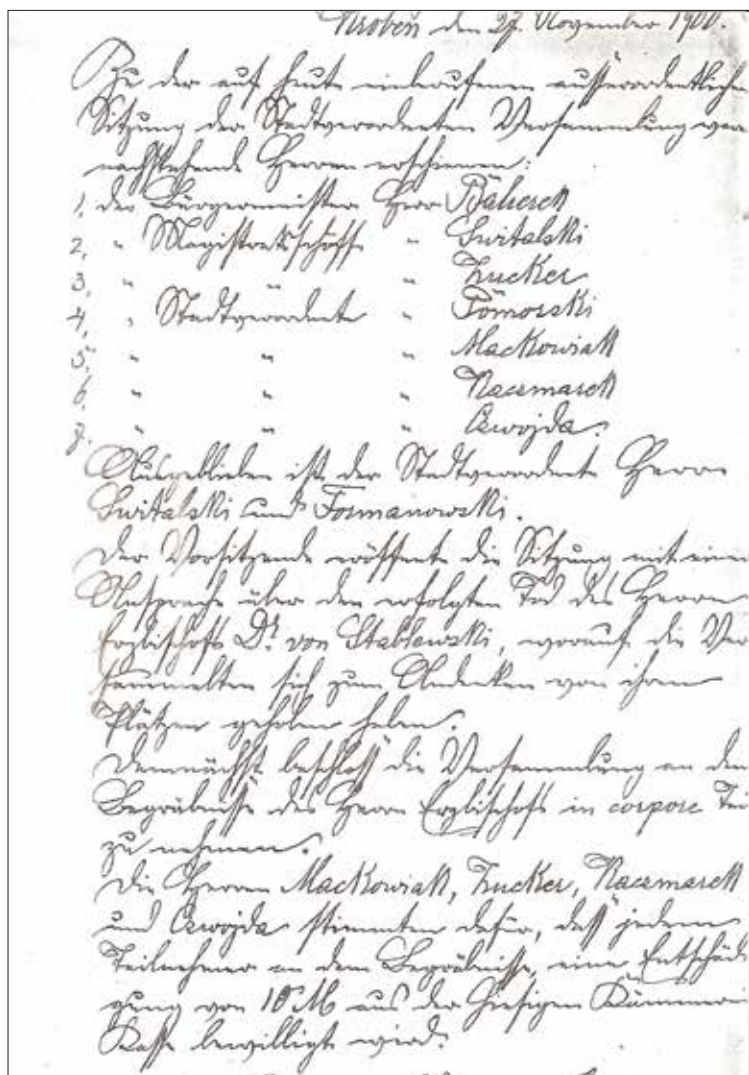 Kroben den 27. November 1900.
Zu der auf heute einberufenen ausserordentliche
Sitzung der Stadtverordneten Versammlung war
nachstehende Herren erschienen:
1, der Bürgermeister Herr
2, " Magistratsschöffe " Switalski
3, " " " Zucker
4, " Stadtverordnete " Pomorski
5, " " " Mackowiak
6, " " " Kaczmarek
7. " " " Czwojda.
Ausgeblieben ist der Stadtverordnete Herrn
Switalski und Formanowski.
Der Vorsitzende eröffnete die Sitzung mit einer
Ansprache über den erfolgten Tod des Herrn
Erzbischofs Dr. von Stablewski, worauf die Ver
sammelten sich zum Andenken von ihren
Plätzen gehoben haben.
Demnächst beschloß die Versammlung an dem
Begräbnisse des Herrn Erzbischofs in corpore Tei
zu nehmen.
Die Herren Mackowiak, Zucker, Kaczmarek
und Czwojda stimmten dafür, daß jedem
Teilnehmer an dem Begräbnisse, eine Entschädi
gung von 10 M aus der hiesigen Kämmerei
Kasse bewilligt wird.